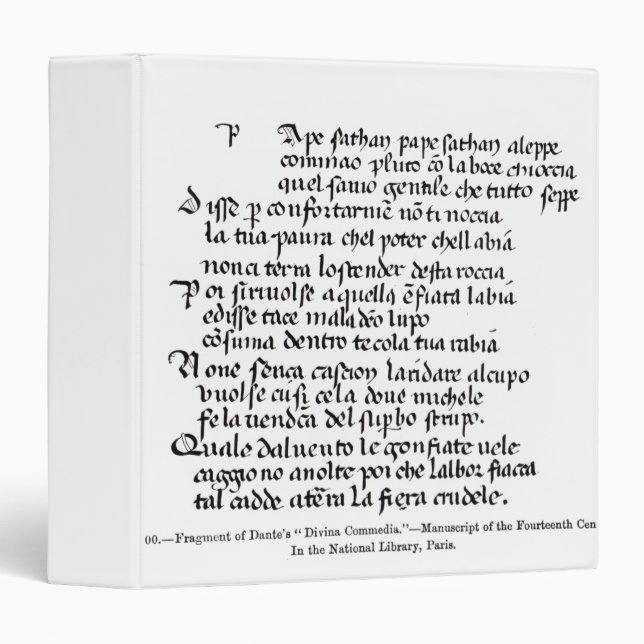 P Ape sathan pape sathan aleppe
cominao pluto cō la boce chioccia
quel savio gentile che tutto seppe
Disse p confortarmē nō ti noccia
la tua paura chel poter chell abiā
non ci terra lo scender desta roccia
Poi si rivolse a quella ēfiata labiā
e disse tace maladēo lupo
cōsuma dentro te cola tua rabiā
None senca cascion laridare al cupo
vuolse cusi cela dove michele
fe la vendcā del supbo strupo.
Quale dal vento le gonfiate vele
caggiono a nolte poi che lalbor fiacca
tal cadde a tēra la fiera crudele.
00.—Fragment of Dante's "Divina Commedia."—Manuscript of the Fourteenth Cen
In the National Library, Paris.